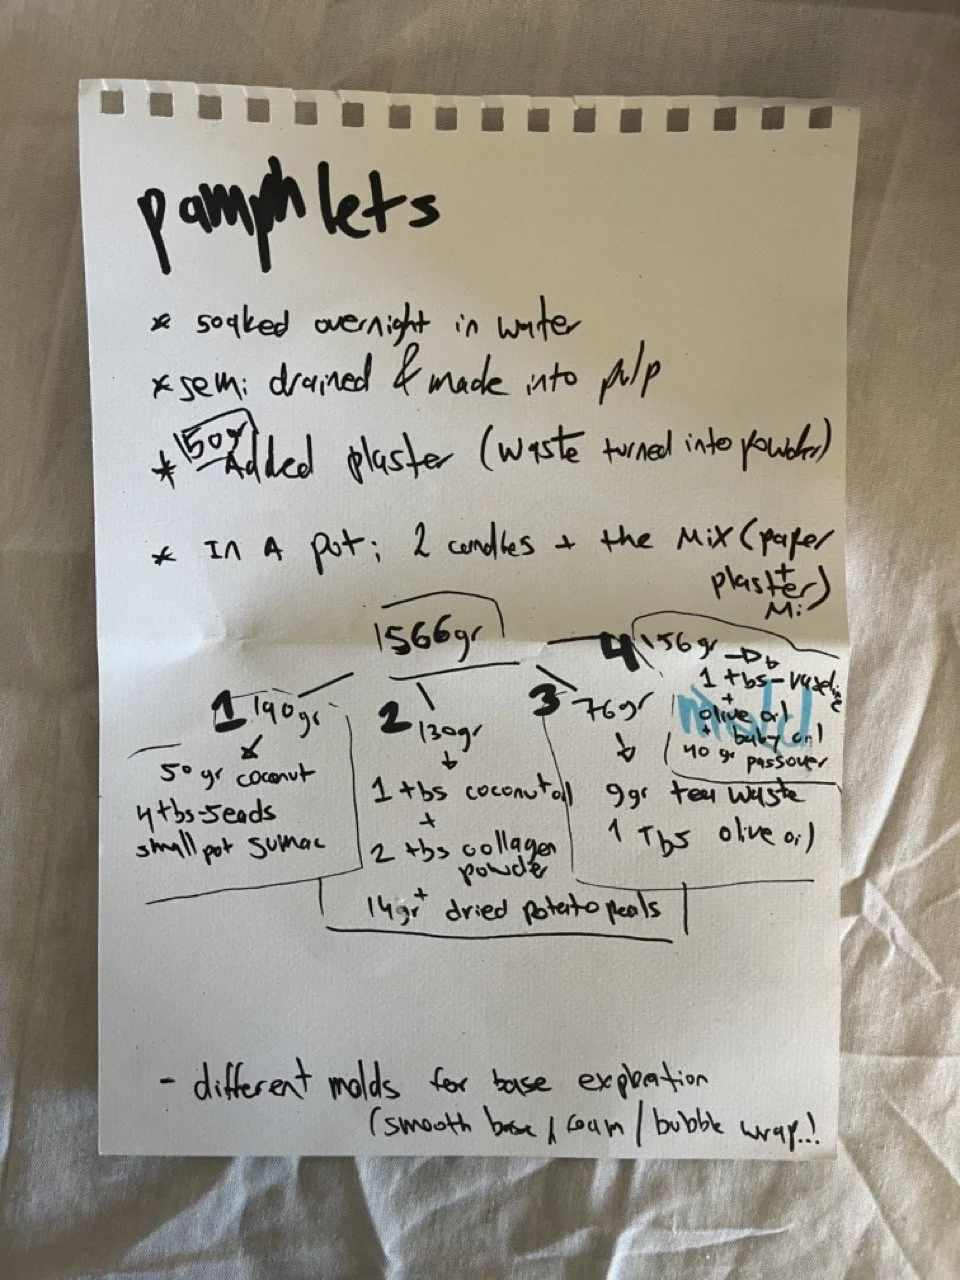 pamphlets
* soaked overnight in water
* semi drained & made into pulp
150gr
* Added plaster (waste turned into powder)
* In A pot; 2 candles + the Mix (paper
+
plaster)
Mi
1566gr
1 190gr
50gr coconut
4 tbs seeds
small pot sumac
2 130gr
1 tbs coconut oil
+
2 tbs collagen
powder
+
14gr dried potato peals
3 76gr
9gr tea waste
1 Tbs olive oil
4 156gr
1 tbs - vaseline
+
olive oil
+ baby oil
40 gr passover
- different molds for base exploration
(smooth base / foam / bubble wrap..!